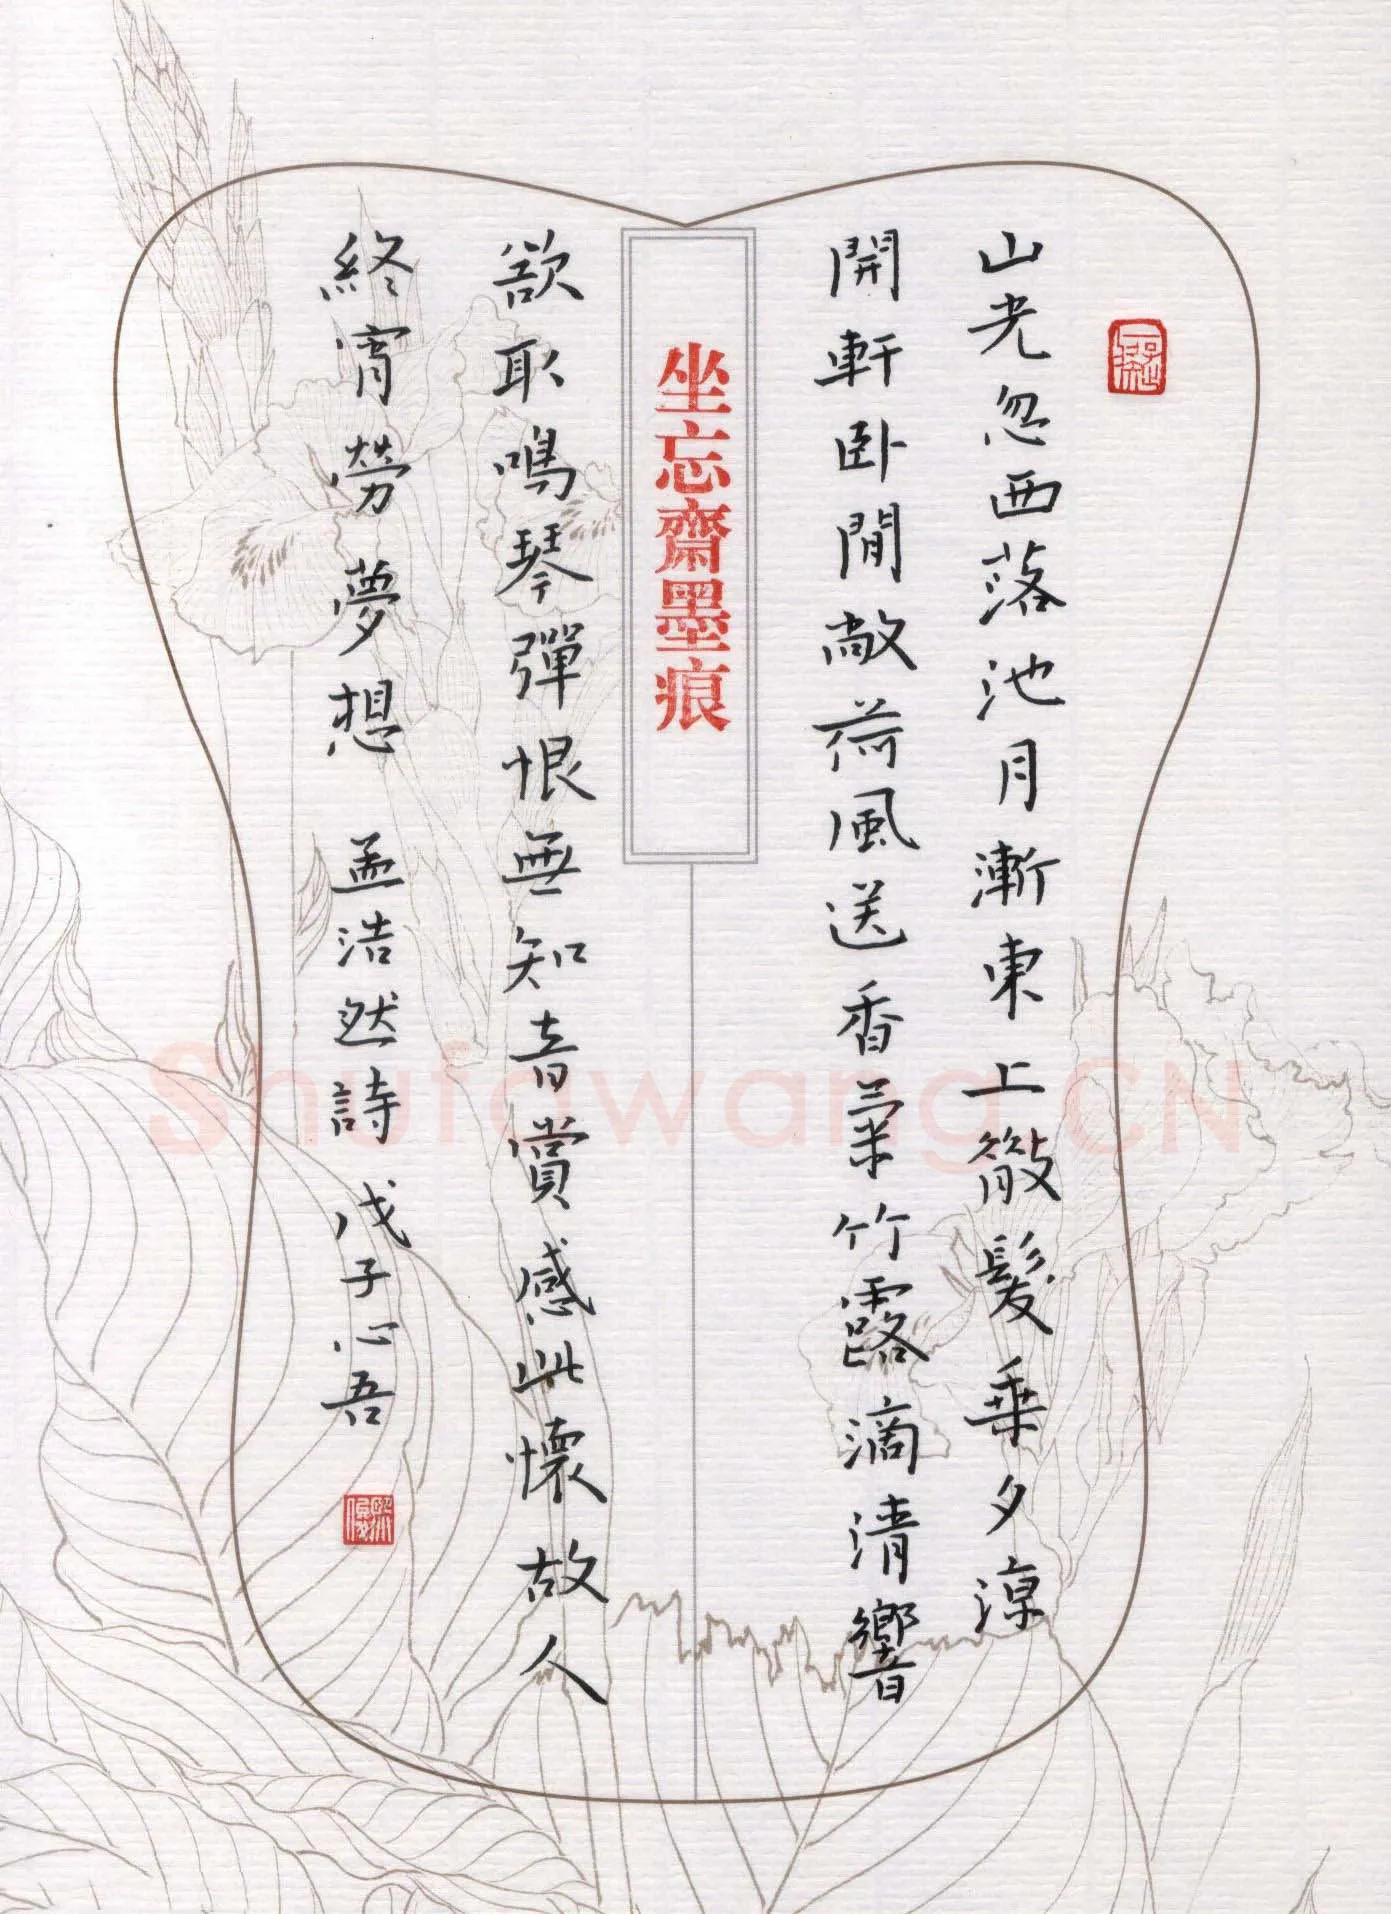 山光忽西落池月漸東上散髮乘夕涼
開軒卧閒敞荷風送香氣竹露滴清響
坐忘齋墨痕
欲取鳴琴彈恨無知音賞感此懷故人
終宵勞夢想 孟浩然詩 戊子心吾
Shufawang.CN